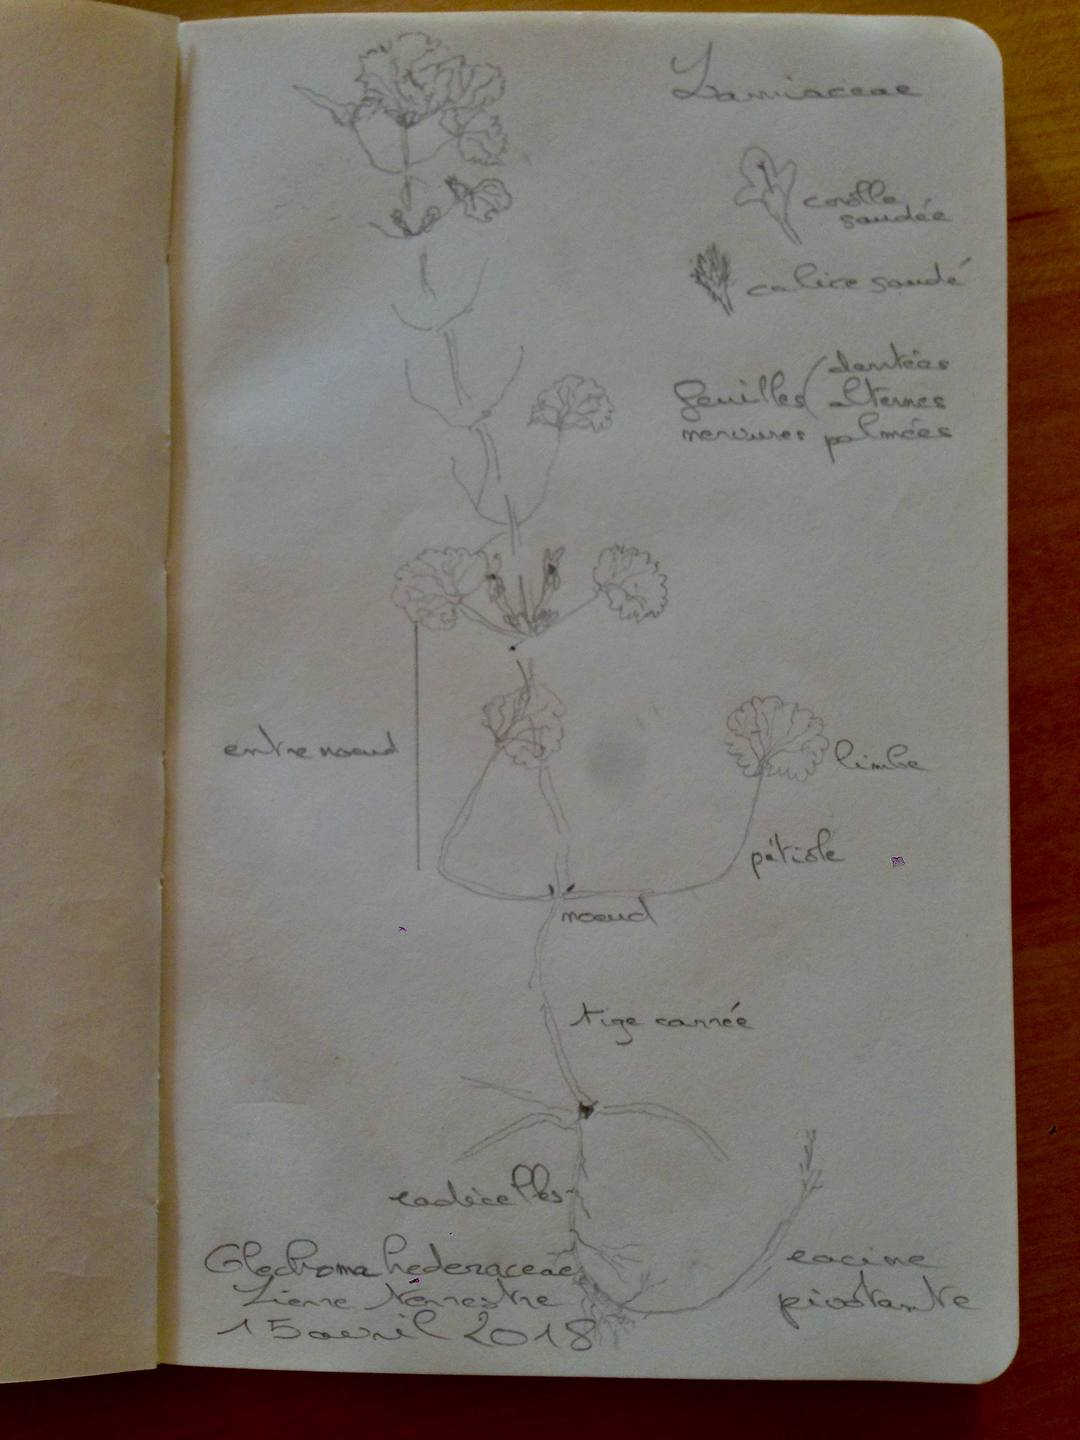 Lamiaceae
corolle
saudée
calice saudé
dentées
feuilles alternes
nervures palmées
entre noeud
limbe
pétiole
noeud
tige carrée
radicelles
Glechoma hederaceae
Lierre Terrestre
15 avril 2018
racine
pivotante